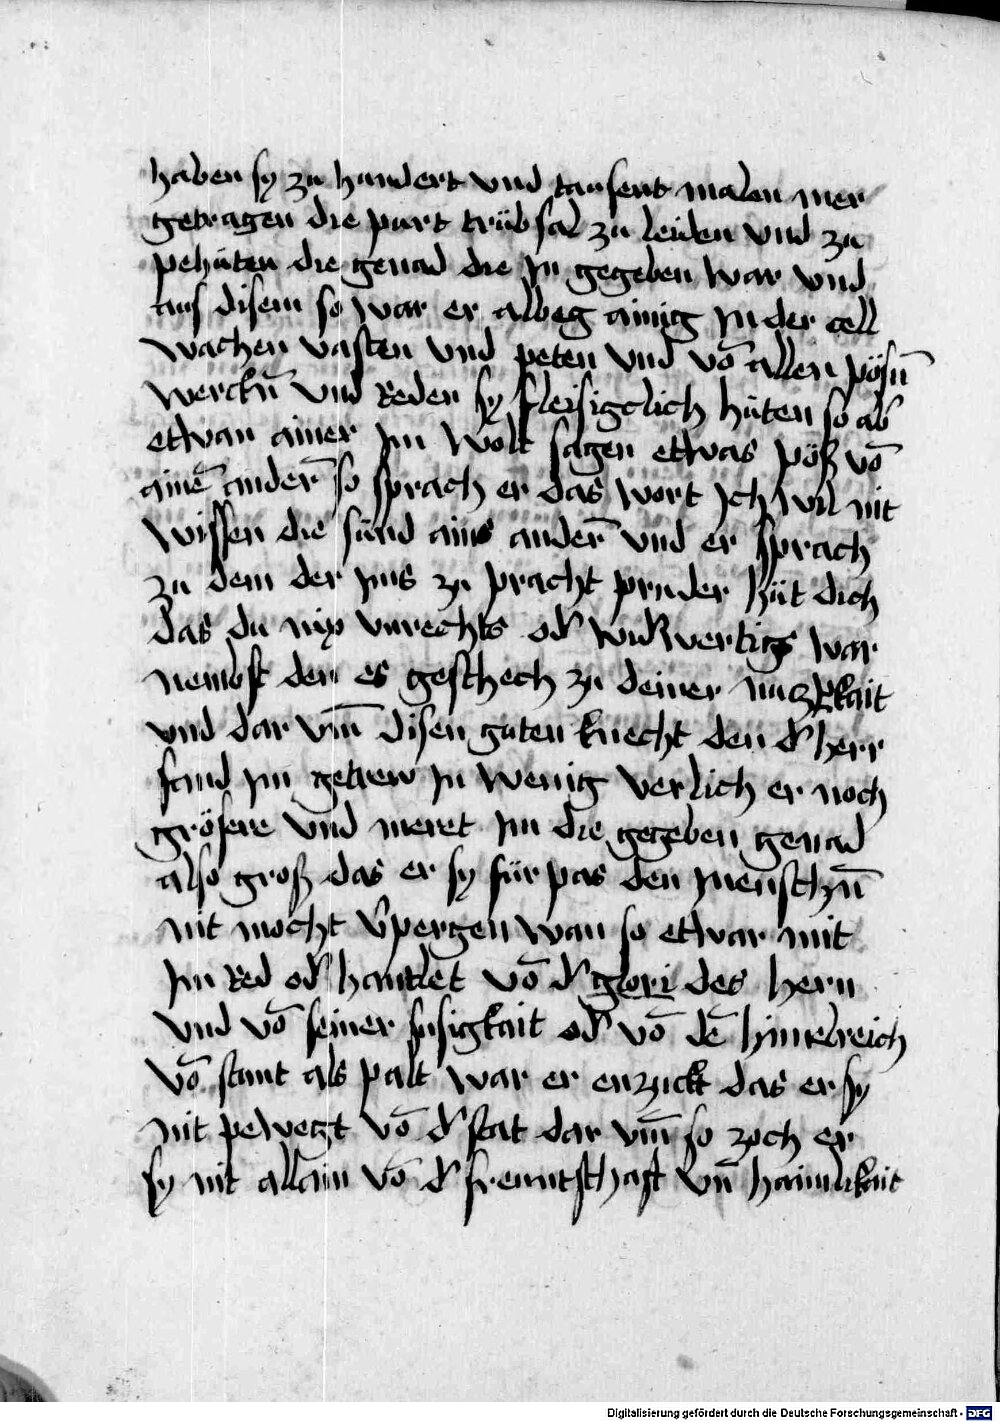 haben sy zu hundert und tausent malen mer
getragen die purt trübsal zu leiden und zu
pehüten die genad die jn gegeben war und
aus disem so war er albeg ainig jn der cell
wachen vasten und peten und vō allen pösn̄
werckn̄ und Reden sy fleisigclich hüten so ab
etwan ainer jm wolt sagen etwas pöß vō
ainē ander̄ so sprach er das wort jch wil nit
wissen die sünd ains ander̄ und er sprach
zu dem der jms zu pracht pruder hüt dich
das du nix unrechts od' widerwertigs war
nembst den es geschech zu deiner nuczpkait
und dar um̄ disen guten knecht den d' herr
fand jm getrew jn wenig verlich er noch
grösere und meret jm die gegeben genad
also groß das er sy für pas den menschn̄
nit mocht v'pergen wan so etwar mit
jm Red od' hantlet vō d' glori des hern
und vō seiner susigkait od' vō dē himelreich
vō stant als palt war er enzuckt das er sy
nit pewegt vō d' stat dar um̄ so zoch er
sy nit allain vō d' freuntschaft un̄ haimlikait
Digitalisierung gefördert durch die Deutsche Forschungsgemeinschaft - DFG